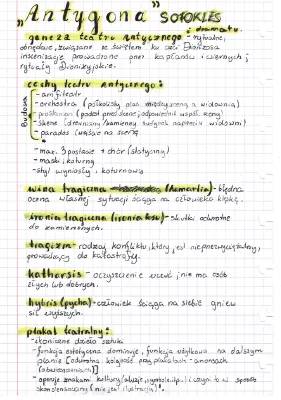 „Antygona” SOFOKLES
geneza teatru antycznego i dramatu - rytualne,
obrzędowe, związane ze świętem ku czci Dionizosa
inscenizacje prowadzone przez kapłanów i wiernych;
rytuały Dionizyjskie.
cechy teatru antycznego:
Budowa
- amfiteatr
- orchestra (półkolisty plac między sceną a widownią)
- proskenion (podest przed skene, odpowiednik współ. sceny)
- skene (drewniany/kamienny budynek naprzeciw widowni)
- parados (wejście na scenę)
- max. 3 postawe + chór (statyczny)
- maski, koturny
- styl wyniosły, koturnowy
wina tragiczna (hamartia) - błędna
ocena własnej sytuacji ściąga na człowieka klęskę.
ironia tragiczna (ironia losu) - skutki odwrotne
do zamierzonych.
tragizm - rodzaj konfliktu, który jest nieprzezwyciężalny,
prowadzący do katastrofy.
katharsis - oczyszczenie uczuć, nie ma osób
złych lub dobrych.
hybris (pycha) - człowiek ściąga na siebie gniew
sił wyższych.
plakat teatralny:
- ikoniczne dzieło sztuki
- funkcja estetyczna dominuje, funkcja użytkowa na dalszym
planie [odwrotna kolejność przy plakatach - anonsach
(obwieszczeniach)]
- operuje znakami kultury (aluzje, symbole itp.) i czyni to w sposób
skondensowany (nie jest ilustracją).